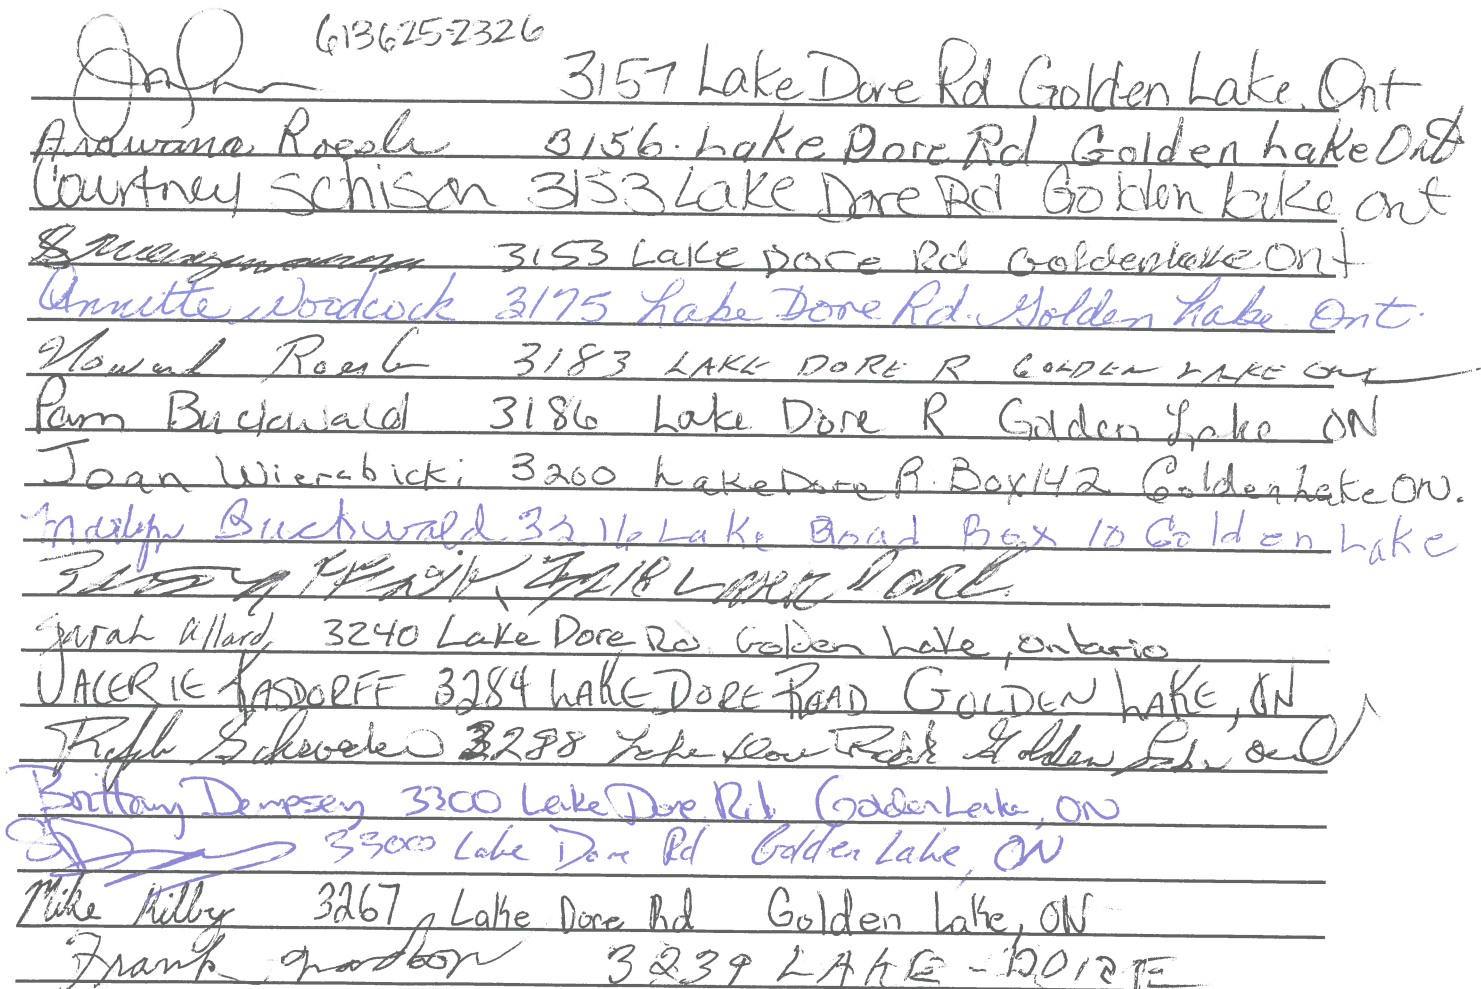 613625-2326
3157 Lake Dore Rd Golden Lake, Ont
3156. Lake Dore Rd Golden Lake Ont
Courtney Schison 3153 Lake Dore Rd Golden Lake Ont
3153 Lake Dore Rd Goldenlake Ont
Annette Woodcock 3175 Lake Dore Rd. Golden Lake Ont.
Howard 3183 LAKE DORE R GOLDEN LAKE Ont
Pam Buckwald 3186 Lake Dore R Golden Lake ON
Joan Wierabicki 3200 Lake Dore R. Box 142 Golden Lake ON.
Buckwald 3216 Lake Road Box 10 Golden Lake
LAKE DORE
Sarah Allard, 3240 Lake Dore Rd Golden Lake, Ontario
VALERIE KASDORFF 3284 LAKE DORE ROAD GOLDEN LAKE, ON
3288 Lake Dore Golden Lake
Brittany Dempsey 3300 Lake Dore Rd. Golden Lake, ON
3300 Lake Dore Rd Golden Lake, ON
Mike Kilby 3267 Lake Dore Rd Golden Lake, ON
Frank 3239 LAKE - DORE